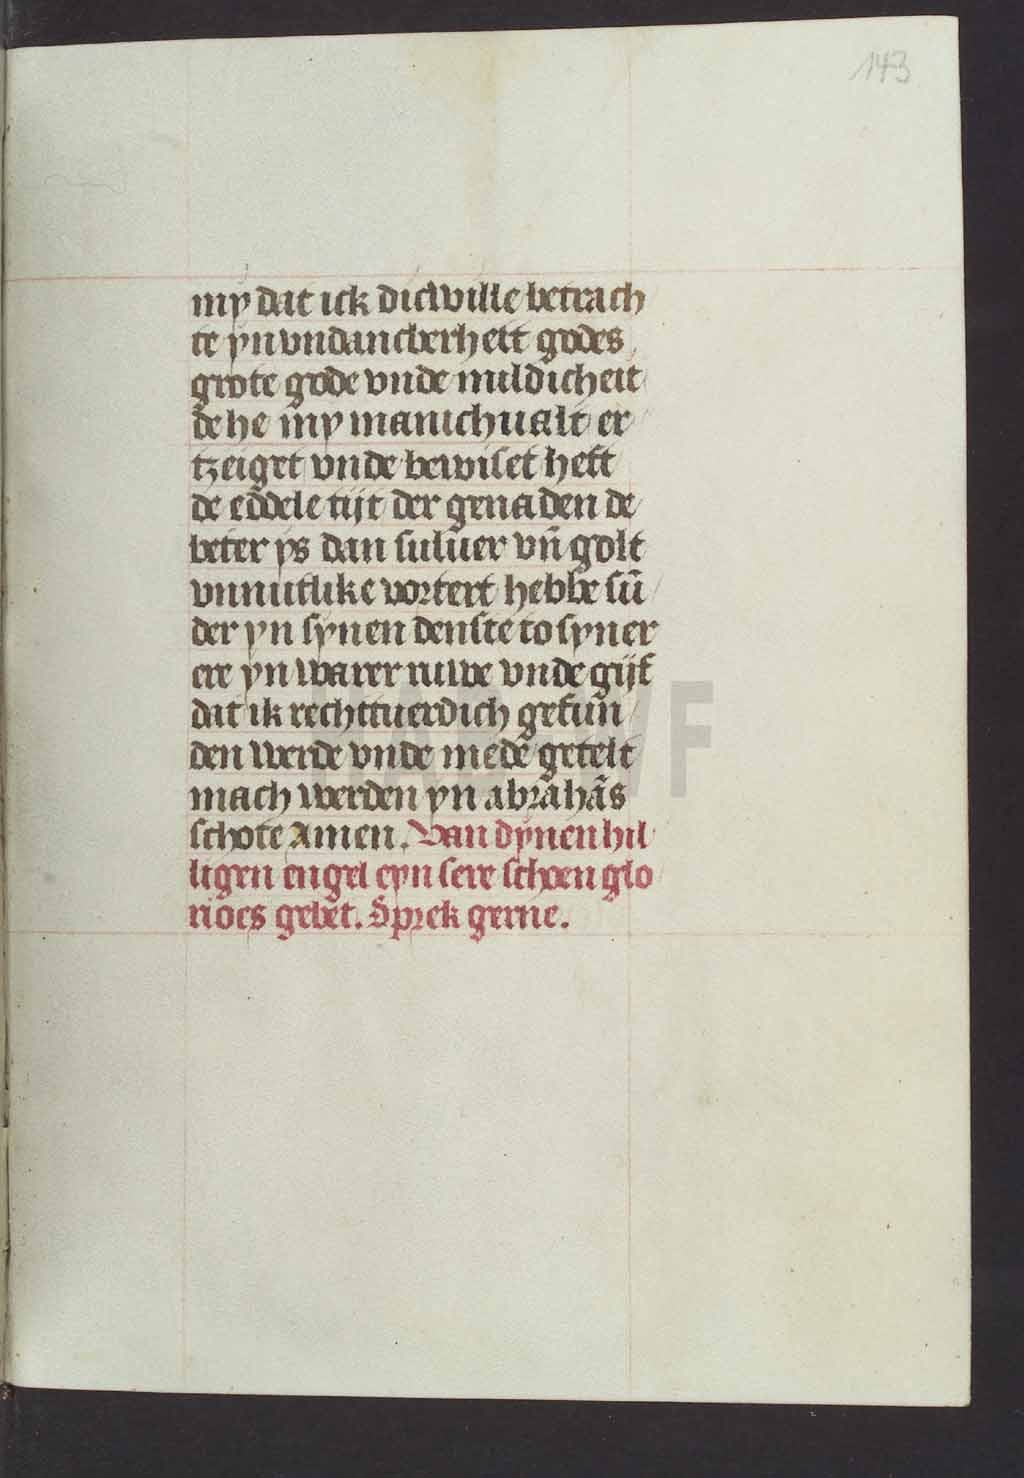 143
my dat ick dicwille betrach
te yn vndancberheit godes
grote gode vnde mildicheit
de he my manichualt er
tzeiget vnde bewiset heft
de eddele tijt der genaden de
beter ys dan suluer vñ golt
vnnutlike vortert hebbe sū
der yn synen denste to syner
ere yn warer ruwe vnde gijf
dat ik rechttuerdich gefun
den werde vnde mede getelt
mach werden yn abrahās
schote Amen. Van dynen hil
ligen engel eyn sere schoen glo
rioes gebet. Sprek gerne.
HAB WF